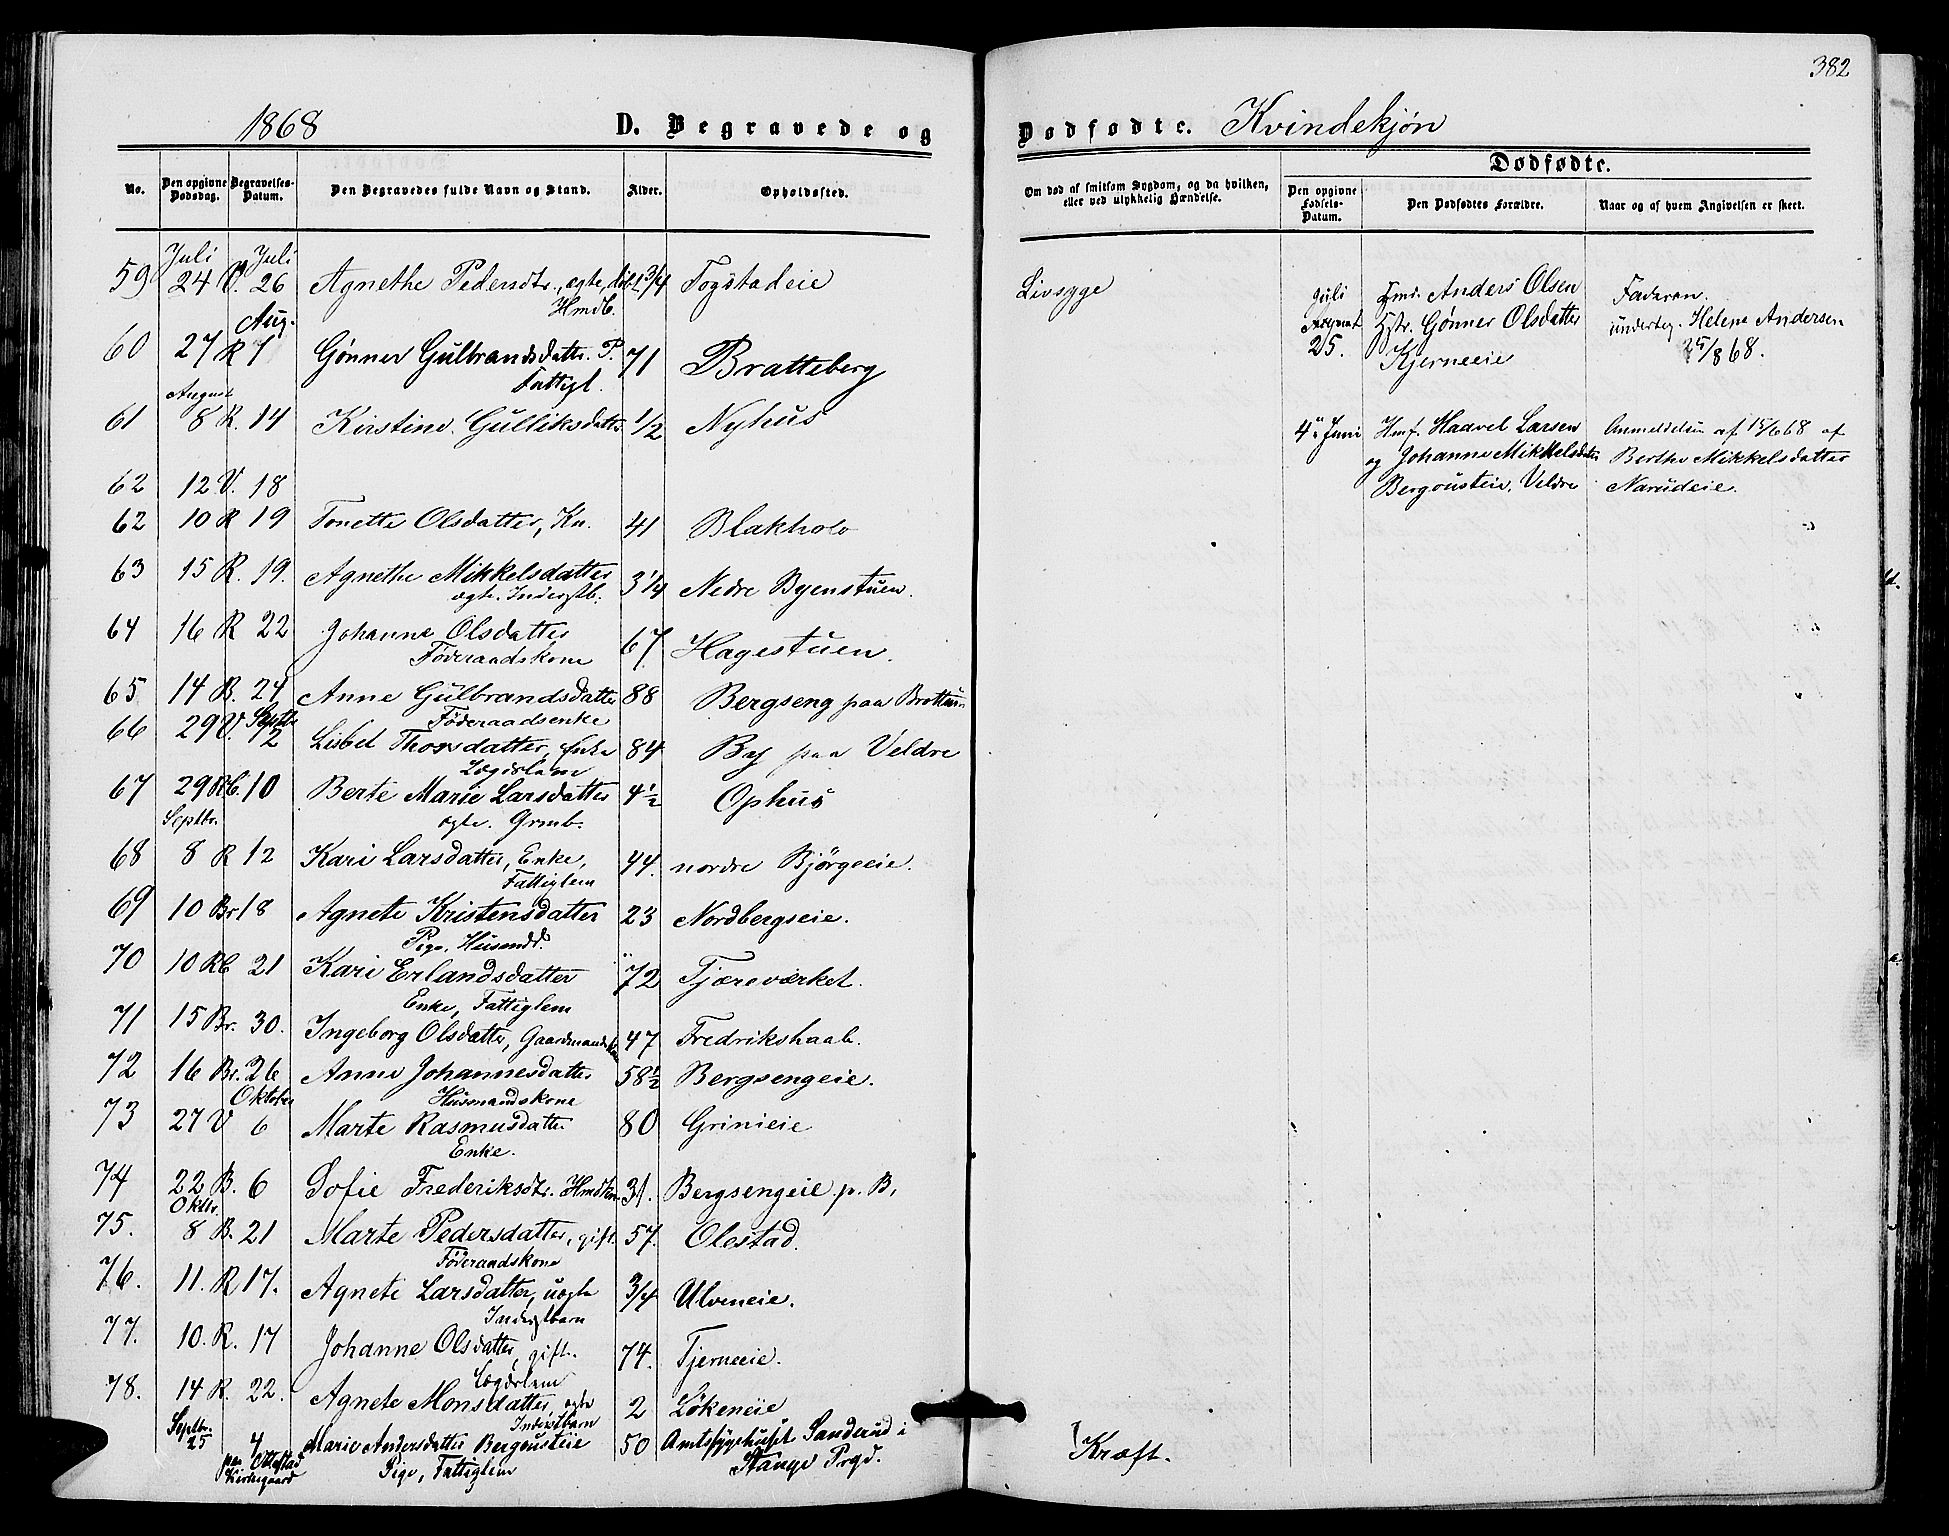 382
1868 D. Begravede og Dødfødte. Kvindekjøn
No. Den opgivne Dødsdag. Begravelses-Datum. Den Begravedes fulde Navn og Stand. Alder. Opholdssted.
Om død af smitsom Sygdom, og da hvilken, eller ved ulykkelig Hændelse.
Dødfødte.
Den opgivne Fødsels-Datum. Den Dødfødtes Forældre. Naar og af hvem Angivelsen er skeet.
Juli Juli
59 24 V. 26 Agnethe Pedersdtr., ægte 1 3/4 Togstadeie Livsyge
Hmdb.
Aug.
60 27 R 7 Gønner Gulbrandsdatter. P. 71 Bratteberg
Fattigl.
August
61 8 R. 14 Kirstine Gulliksdatter 1/2 Nyhus
62 12 V. 18
62 10 R 19 Tonette Olsdatter, Kn. 41 Blakholo
63 15 R. 19. Agnethe Mikkelsdatter 3 1/4 Nedre Byenstuen.
ægte. Inderstb.
64 16 R 22 Johanne Olsdatter 67 Hagestuen.
Føderaadskone
65 14 B. 24 Anne Gulbrandsdatter 88 Bergseng paa Brottum
Føderaadsenke
Septbr
66 29 V. 2 Lisbet Thorsdatter, Enke 84 By paa Veldre
Lægdslem
67 29 Rb. 10 Berte Marie Larsdatter 4 1/2 Ophus
ægte. Grmb.
Septbr.
68 8 R 12 Kari Larsdatter, Enke, 44. nordre Bjørgeeie.
Fattiglem
69 10 Br 18 Agnete Kristensdatter 23 Nordbergseie.
Pige. Husmdd.
70 10 Rb 21 Kari Erlandsdatter 72 Tjæreværket.
Enke, Fattiglem
71 15 Br. 30. Ingeborg Olsdatter, Gaardmandskone 47 Fredrikshaab.
72 16 Br. 26 Anne Johannesdatter 58 1/2 Bergsengeie.
Husmandskone
Oktober
73 27 V 6 Marte Rasmusdatter 80 Grinieie
Enke.
74 22 B. 6 Sofie Frederiksdtr. Hmdkone 31. Bergsengeie p. B.
Oktbr.
75. 8 B. 21 Marte Pedersdatter, gift. 57. Olestad.
Føderaadskone
76. 11. R 17. Agnete Larsdatter, uægte 3/4 Ulveneie.
Inderstbarn
77. 10. R. 17 Johanne Olsdatter, gift. 74. Tjerneeie.
Lægdslem
78. 14 R. 22. Agnete Monsdatter, ægte 2 Løkeneie
Inderstbarn
Septbr. 25 4 Marie Andersdatter Bergousteie 50 Amtssygehuset Sanderud i Kræft.
paa Ottestad Kirkegaard Pige, Fattiglem Stange Prgd.
Juli 25. Hmd. Anders Olsen Faderen.
Hstr. Gønner Olsdatter underteg. Helene Andersen
Kjerneeie 25/8 68.
4de Juni Hmf. Haavel Larsen Anmeldelsen af 15/6 68 af
og Johanne Mikkelsdatter Berthe Mikkelsdatter
Bergousteie, Veldre Narudeie.